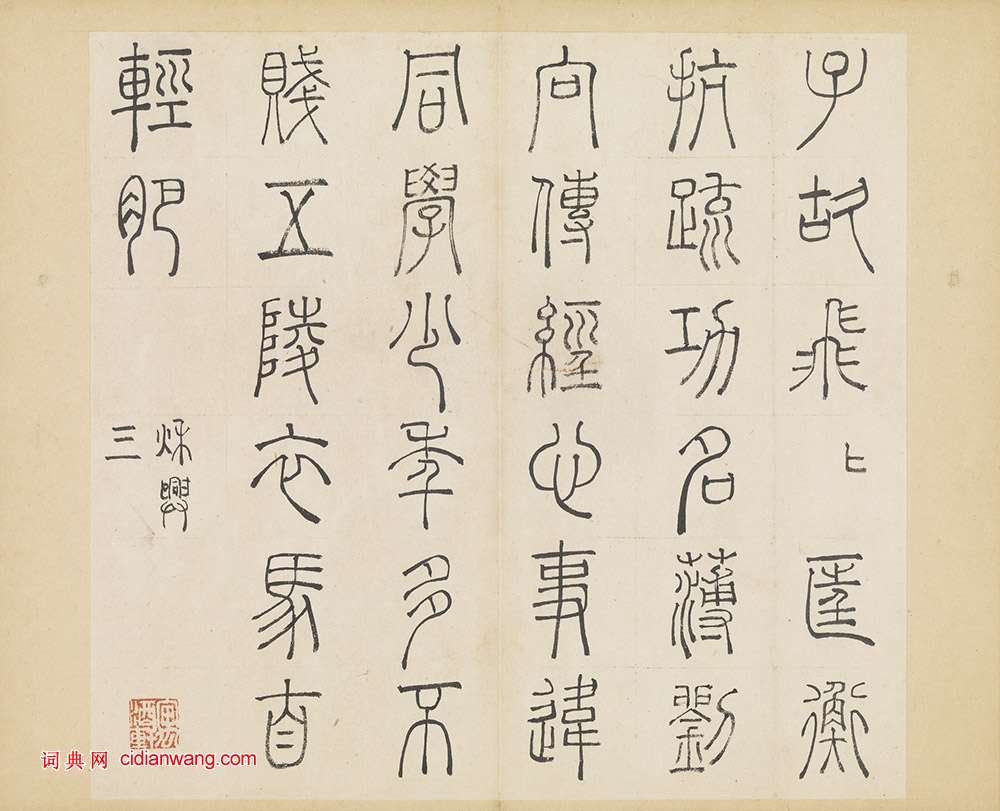 子故飛〻匡衡
抗疏功名薄劉
向傳經心事違
同學少年多不
賤五陵衣馬自
輕肥
秋興
三
词典网 cidianwang.com